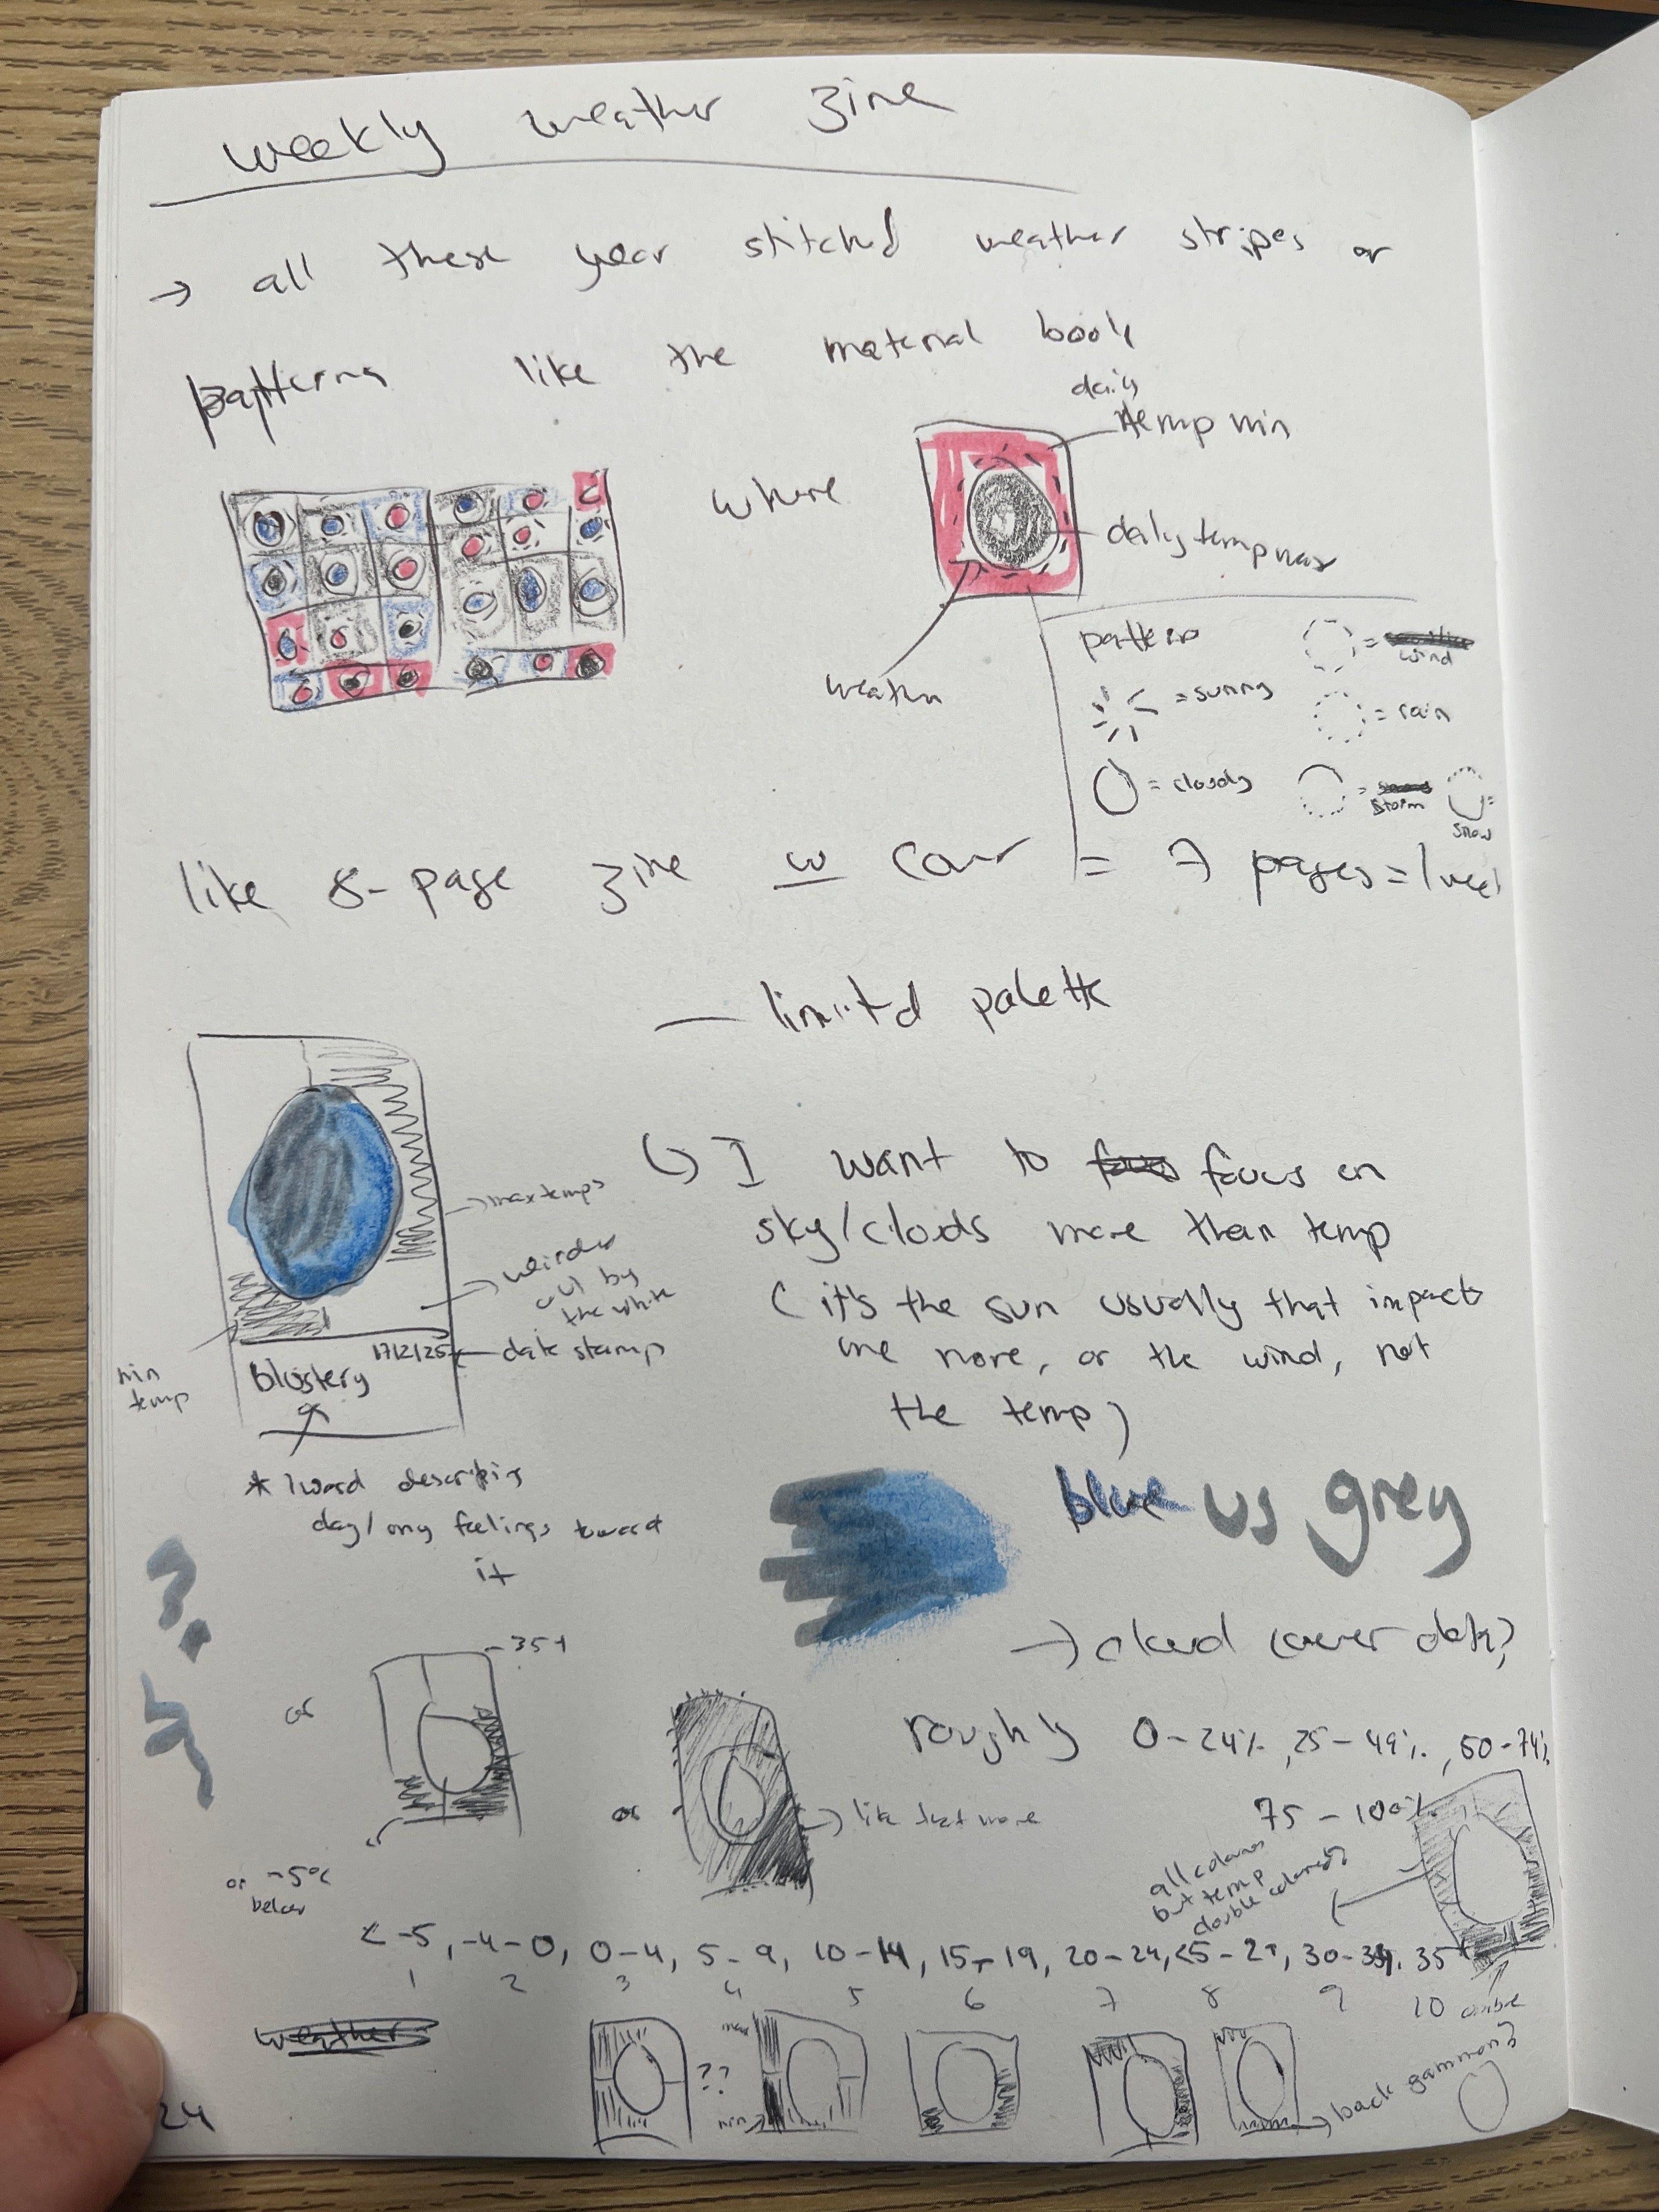 weekly weather zine
→ all these year stitched weather stripes or
patterns like the material book
where
daily
temp min
daily temp max
weather
pattern
= wind
= sunny
= rain
= cloudy
= storm
= snow
like 8-page zine w cover = 7 pages = 1 week
— limited palette
I want to focus on
sky/clouds more than temp
(it's the sun usually that impacts
me more, or the wind, not
the temp)
→ max temps
by
the white
17/2/25 ← date stamp
min
temp
blustery
* 1 word describing
day/my feelings toward
it
blue vs grey
→ cloud cover data?
roughly 0-24%, 25-49%, 50-74%,
75-100%
or
35+
or
→ like that more
or -5°C
below
all colours
but temp
double coloured?
< -5, -4-0, 0-4, 5-9, 10-14, 15-19, 20-24, 25-29, 30-34, 35+
1 2 3 4 5 6 7 8 9 10
double
weather
??
max
min
→ back gammon?
24